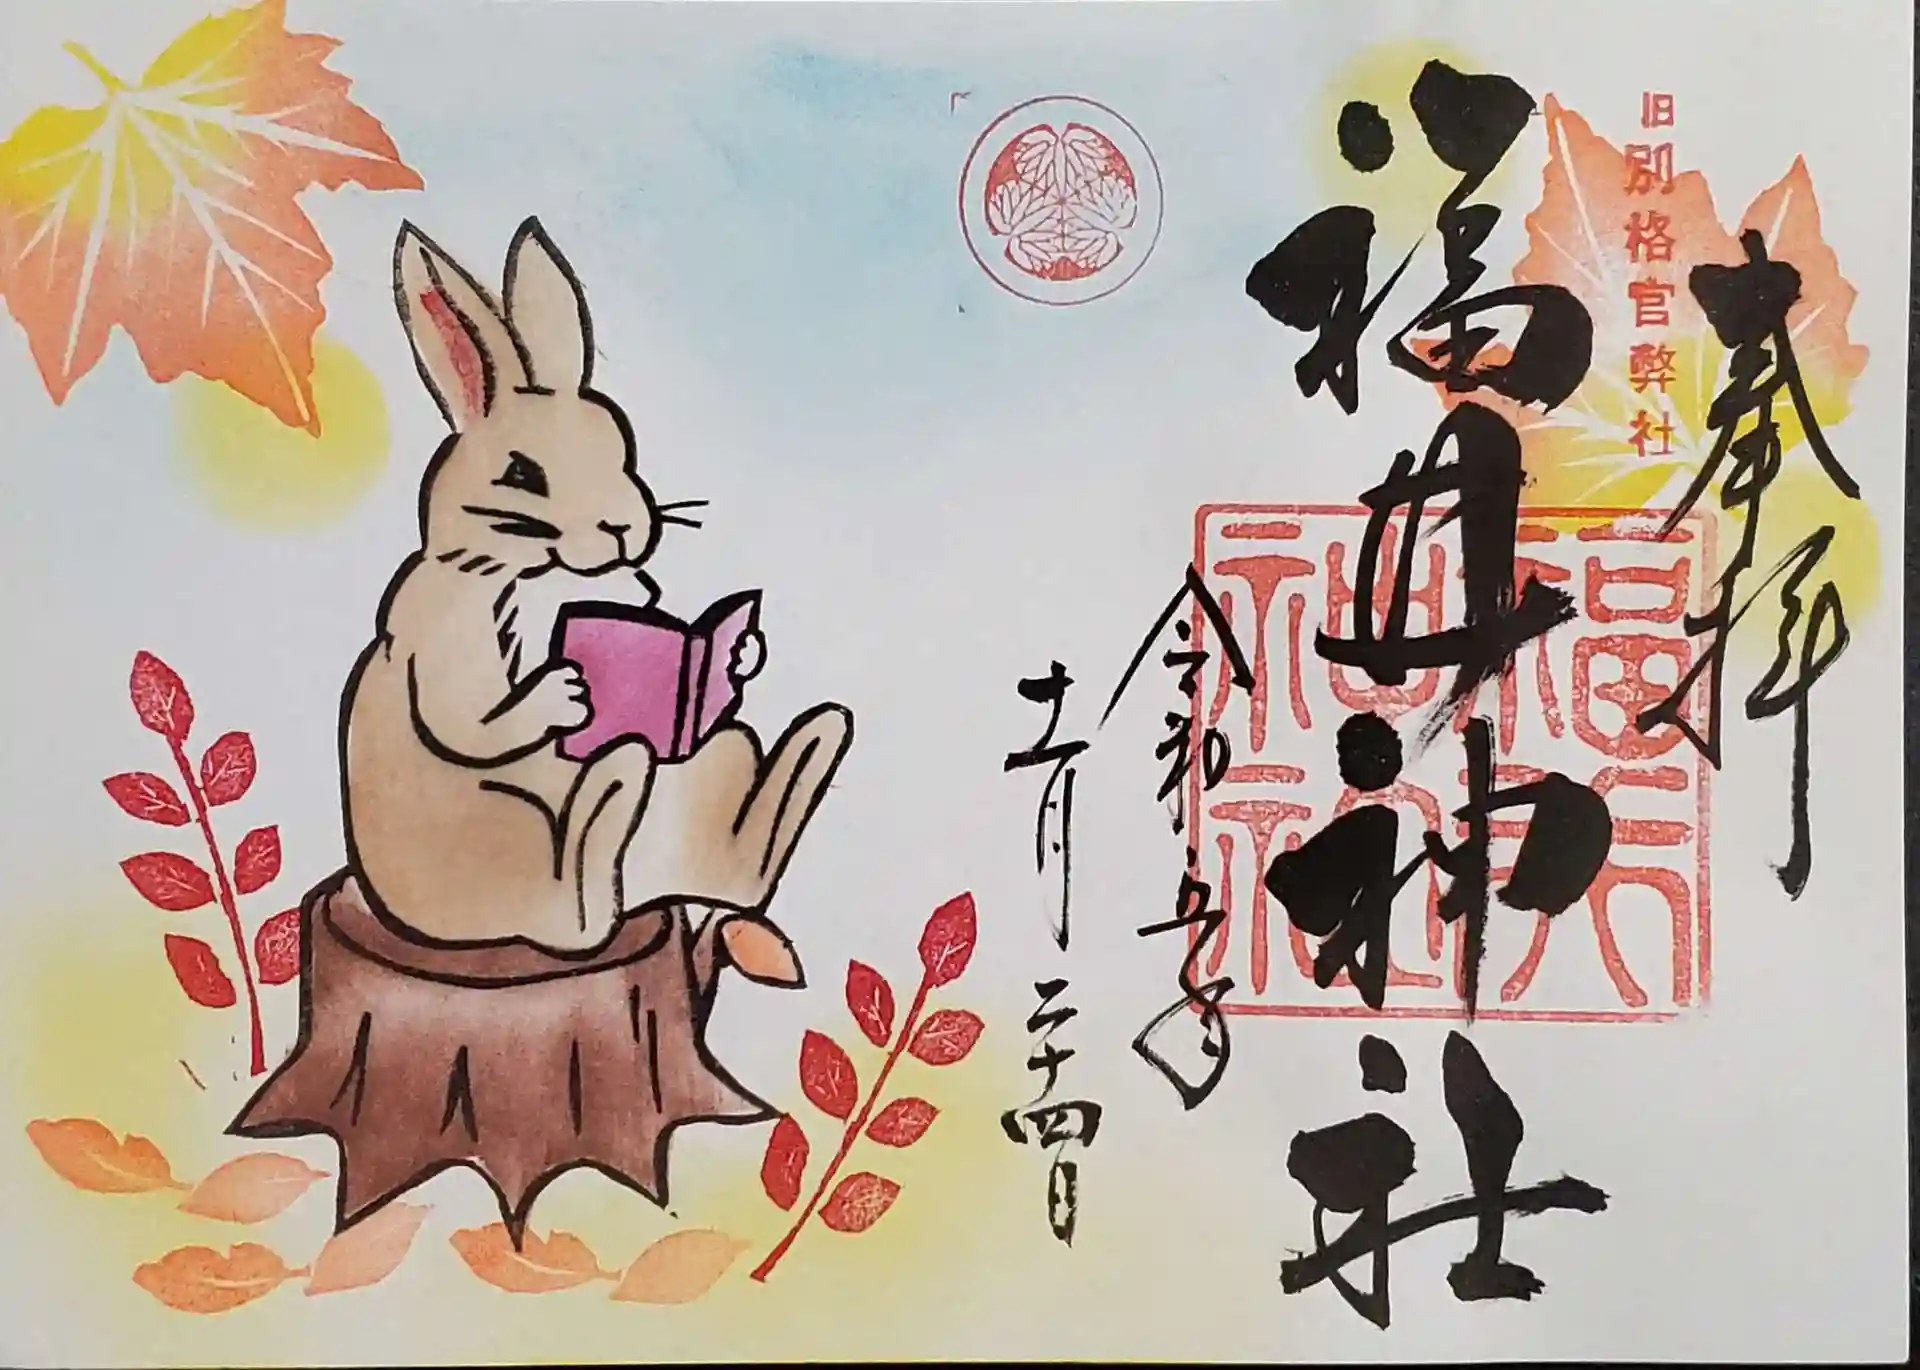 奉拝
旧別格官弊社
福井神社
福井
神社
令和五年
十一月二十四日